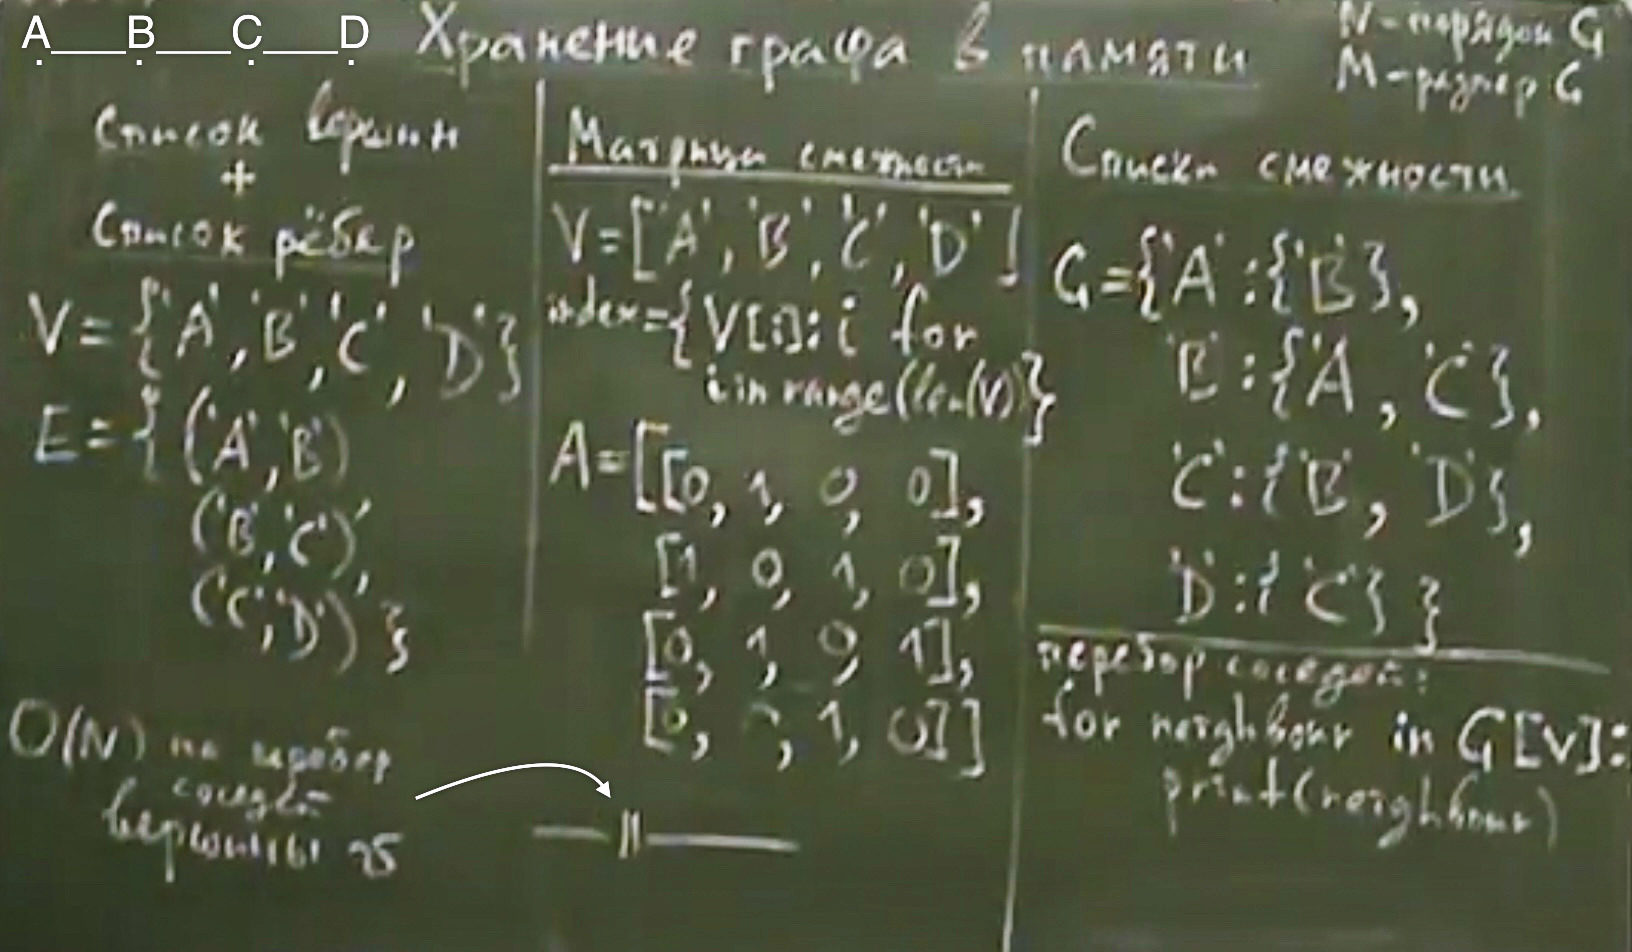 A___B___C___D
Хранение графа в памяти
N-порядок G
M-размер G
Список вершин
+
Список рёбер
V={'A','B','C','D'}
E={('A','B')
('B','C'),
('C','D')}
O(N) на перебор
соседей
вершины v
Матрица смежности
V=['A','B','C','D']
index={V[i]:i for
i in range(len(V))}
A=[[0, 1, 0, 0],
[1, 0, 1, 0],
[0, 1, 0, 1],
[0, 0, 1, 0]]
— || —
Списки смежности
G={'A':{'B'},
'B':{'A, 'C'},
'C':{'B', 'D'},
'D':{'C'}}
перебор соседей:
for neighbour in G[v]:
print(neighbour)